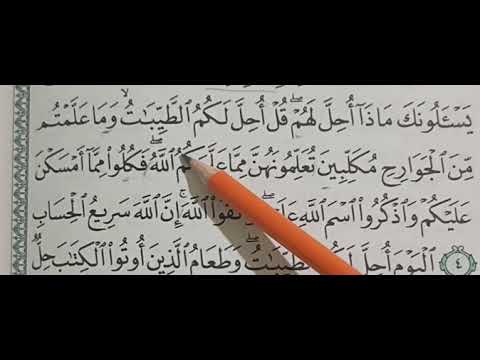 يَسْـَٔلُونَكَ مَاذَآ أُحِلَّ لَهُمْۖ قُلْ أُحِلَّ لَكُمُ ٱلطَّيِّبَـٰتُۙ وَمَا عَلَّمْتُم
مِّنَ ٱلْجَوَارِحِ مُكَلِّبِينَ تُعَلِّمُونَهُنَّ مِمَّا ٱللَّهُۖ فَكُلُوا۟ مِمَّآ أَمْسَكْنَ
عَلَيْكُمْ وَٱذْكُرُوا۟ ٱسْمَ ٱللَّهِ ٱللَّهَۚ إِنَّ ٱللَّهَ سَرِيعُ ٱلْحِسَابِ
٤ ٱلْيَوْمَ أُحِلَّ وَطَعَامُ ٱلَّذِينَ أُوتُوا۟ ٱلْكِتَـٰبَ حِلٌّ